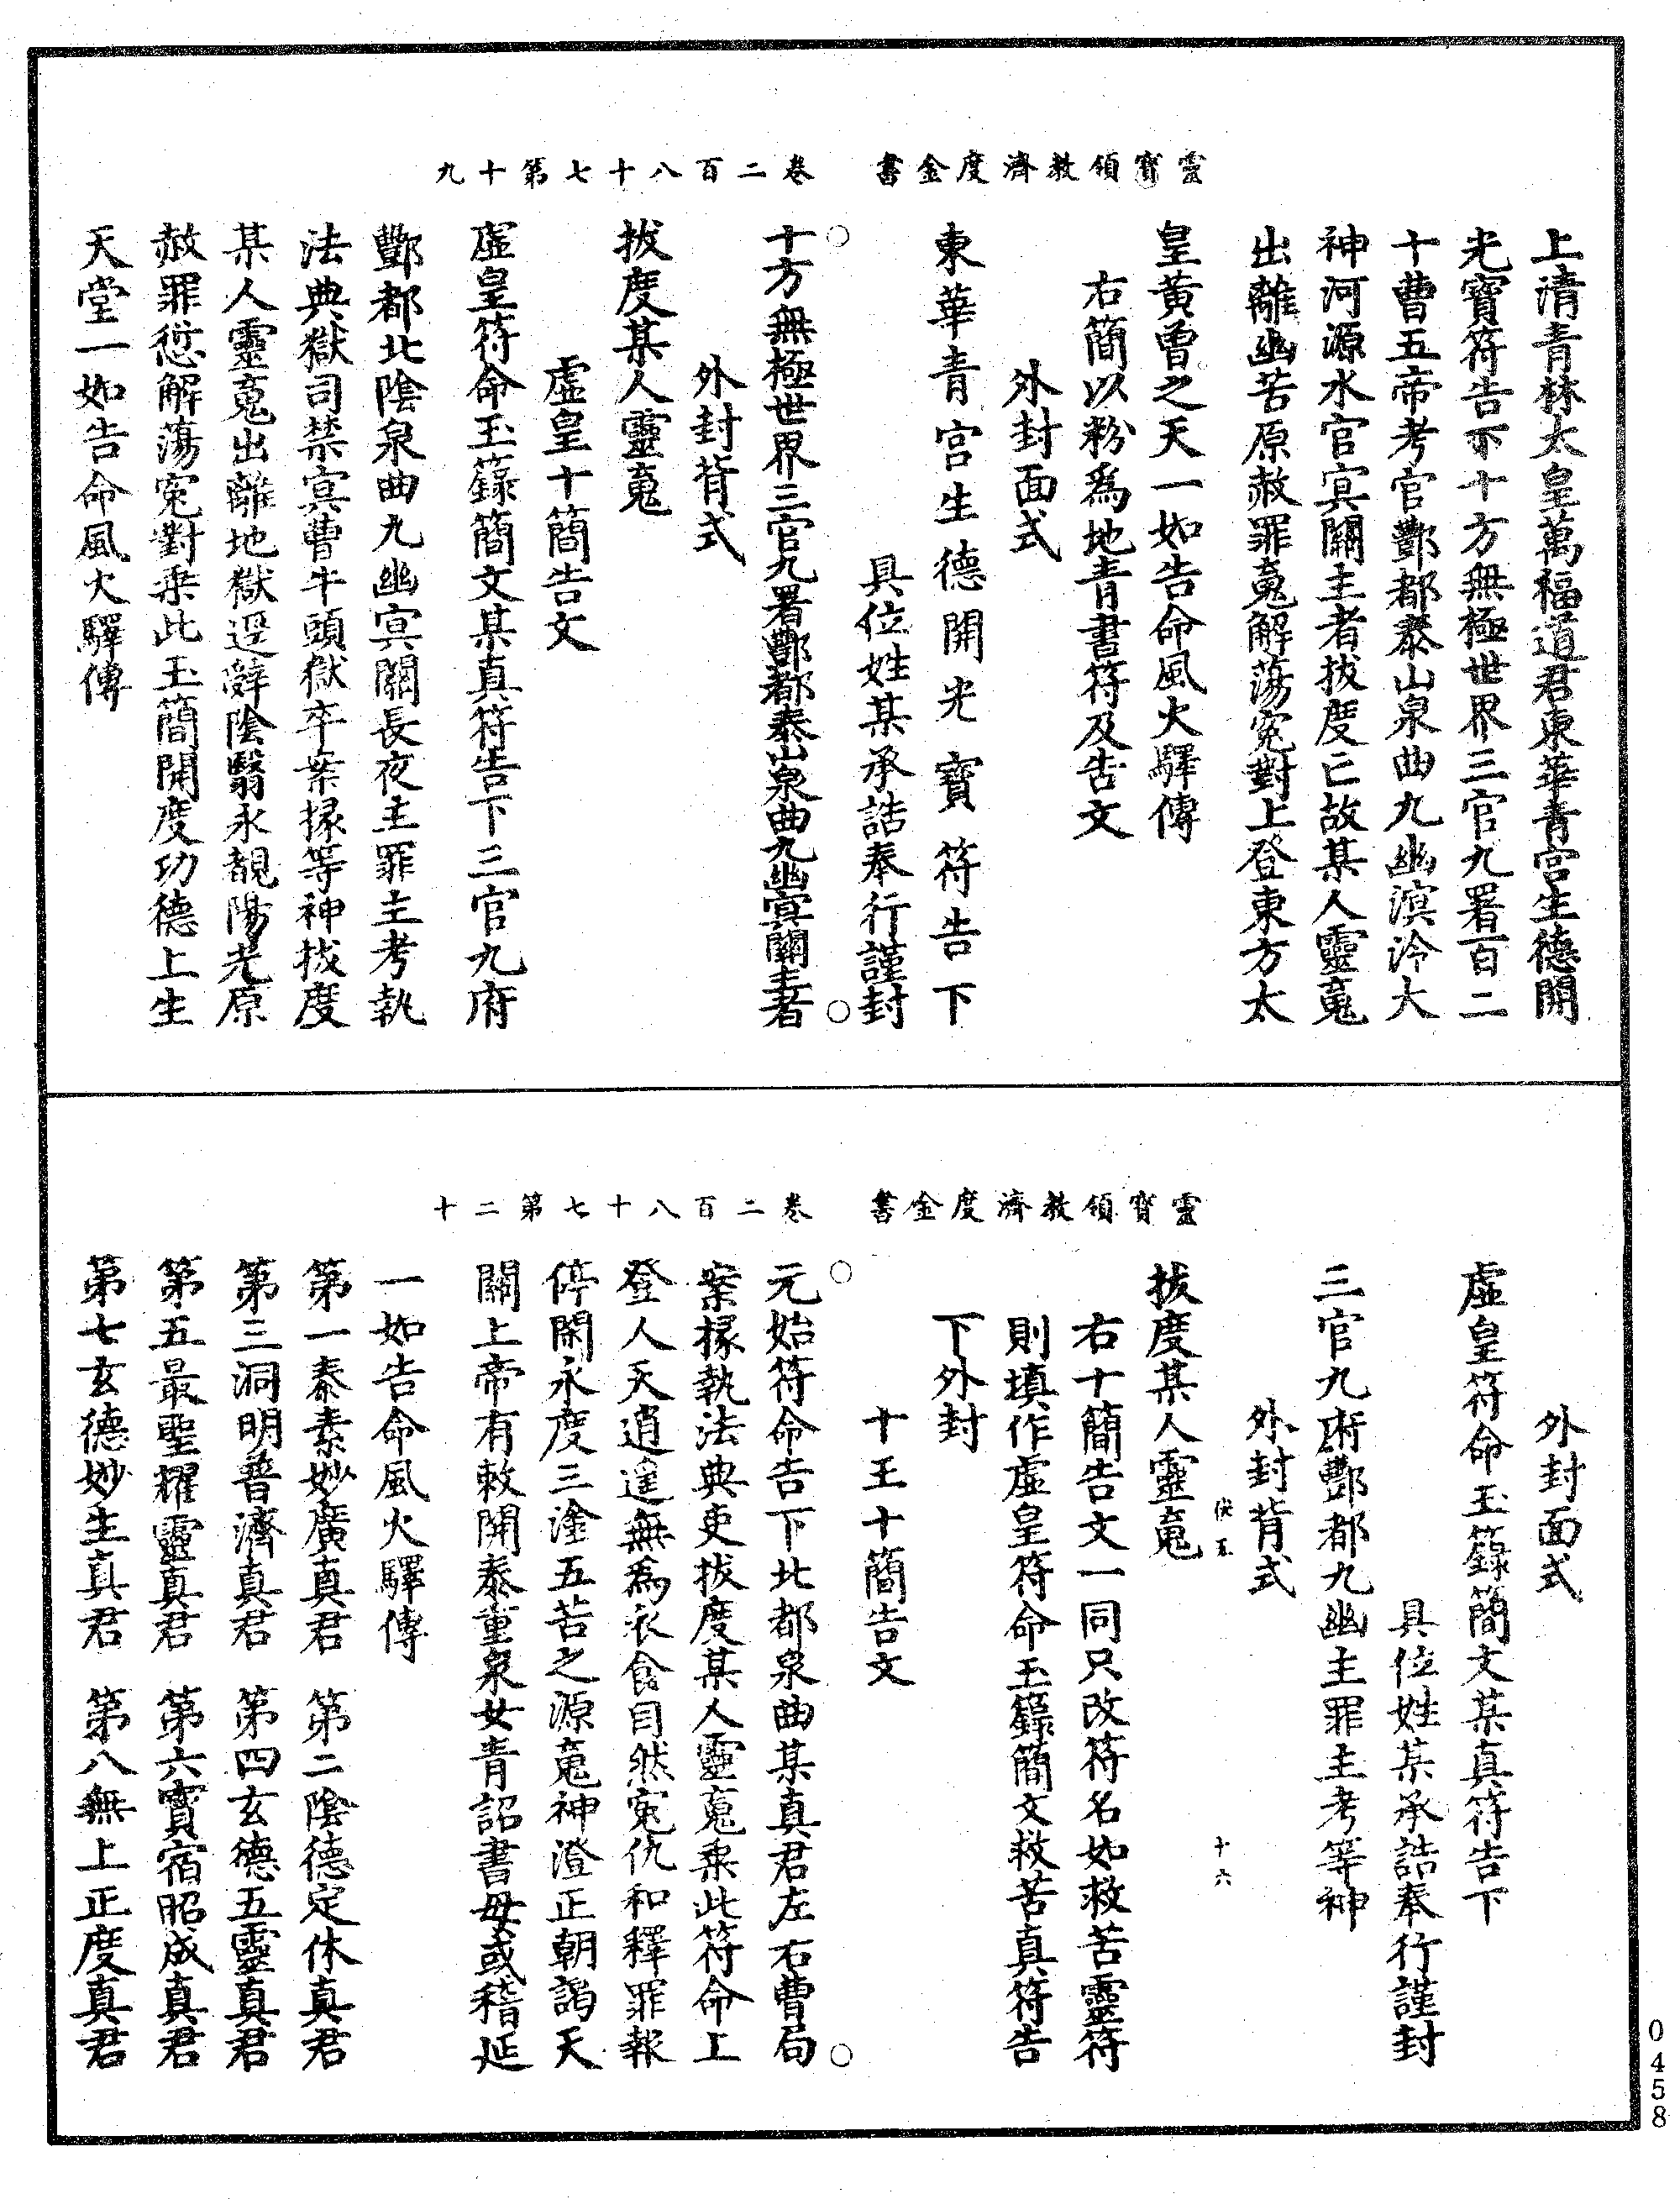 靈寶領教濟度金書　卷二百八十七第十九
上清青林太皇萬福道君東華青宮生德開
光寶符告下十方無極世界三官九署百二
十曹五帝考官酆都泰山泉曲九幽溟泠大
神河源水官冥關主者拔度亡故某人靈䰟
出離幽苦原赦罪䰟解蕩寃對上登東方太
皇黃曾之天一如告命風火驛傳
右簡以粉爲地青書符及告文
外封面式
東華青宮生德開光寶符告下
具位姓某承誥奉行謹封
十方無極世界三官九署酆都泰山泉曲九幽冥關主者
外封背式
拔度某人靈䰟
虛皇十簡告文
虛皇符命玉籙簡文某真符告下三官九府
酆都北陰泉曲九幽冥關長夜主罪主考執
法典獄司禁冥曹牛頭獄卒案掾等神拔度
某人靈䰟出離地獄逕辭陰翳永覩陽光原
赦罪愆解蕩寃對乘此玉簡開度功德上生
天堂一如告命風火驛傳
靈寶領教濟度金書　卷二百八十七第二十
外封面式
虛皇符命玉籙簡文某真符告下
具位姓某承誥奉行謹封
三官九府酆都九幽主罪主考等神
外封背式
十六
拔度某人靈䰟
右十簡告文一同只改符名如救苦靈符
則填作虛皇符命玉籙簡文救苦真符告
下外封
十王十簡告文
元始符命告下北都泉曲某真君左右曹局
案掾執法典吏拔度某人靈䰟乘此符命上
登人天逍遙無爲衣食自然寃仇和釋罪報
停閑永度三塗五苦之源䰟神澄正朝謁天
關上帝有敕開泰重泉女青詔書毋或稽延
一如告命風火驛傳
第一泰素妙廣真君　第二陰德定休真君
第三洞明普濟真君　第四玄德五靈真君
第五最聖耀靈真君　第六寶宿昭成真君
第七玄德妙生真君　第八無上正度真君
0458